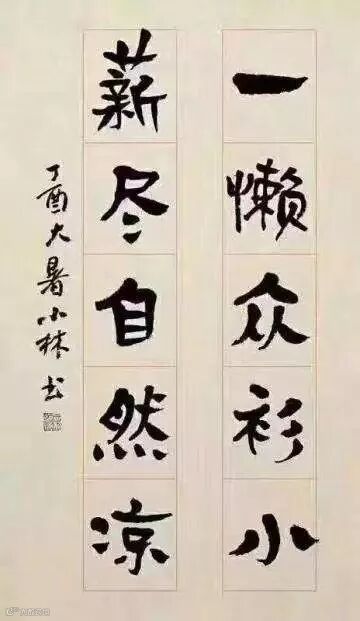 一懒众衫小
薪尽自然凉
丁酉大暑小林书